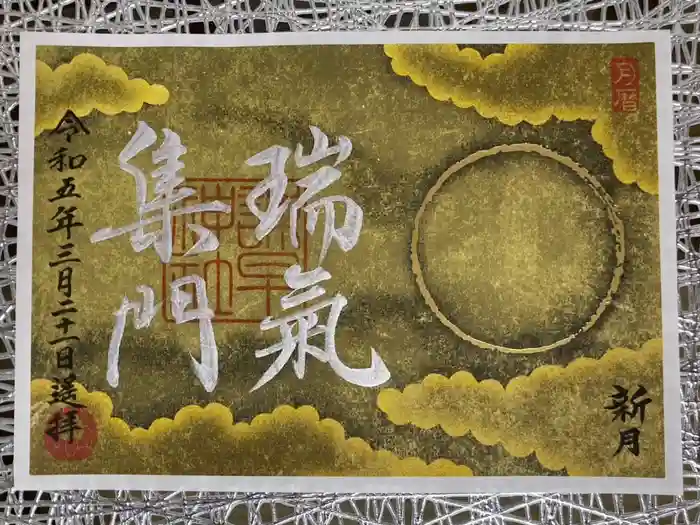 月暦
新月
瑞氣
集門
令和五年三月二十一日遥拝